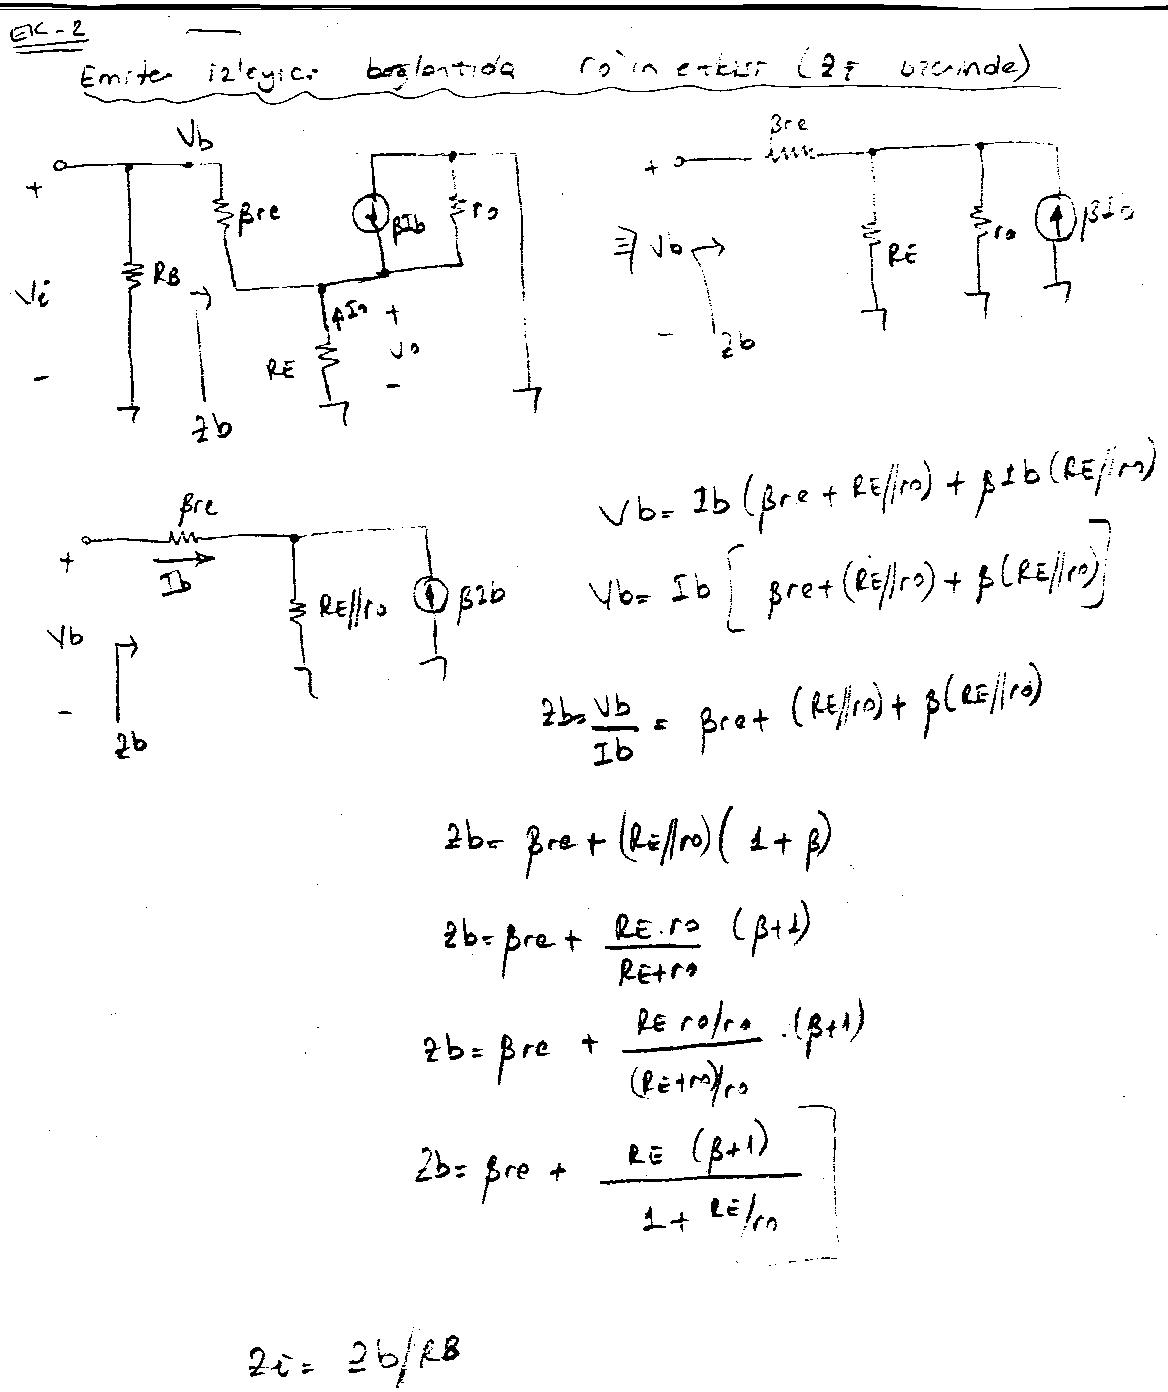 EK-2
Emiter izleyici bağlantıda ro'ın etkisi (Zi üzerinde)
Vb
βre
βIb
ro
RB
Vi
+
-
Zb
RE
Io
+
Vo
-
βre
+
Vb
-
Zb
RE
ro
βIb
βre
+
Ib
Vb
-
Zb
RE//ro
βIb
Vb= Ib (βre + RE//ro) + βIb (RE//ro)
Vb= Ib [ βre + (RE//ro) + β(RE//ro) ]
Zb= Vb/Ib = βre + (RE//ro) + β(RE//ro)
Zb= βre + (RE//ro) ( 1 + β)
Zb= βre + RE.ro / RE+ro (β+1)
Zb= βre + RE ro/ro / (RE+ro)/ro .(β+1)
Zb= βre + RE (β+1) / 1 + RE/ro
Zi= Zb//RB